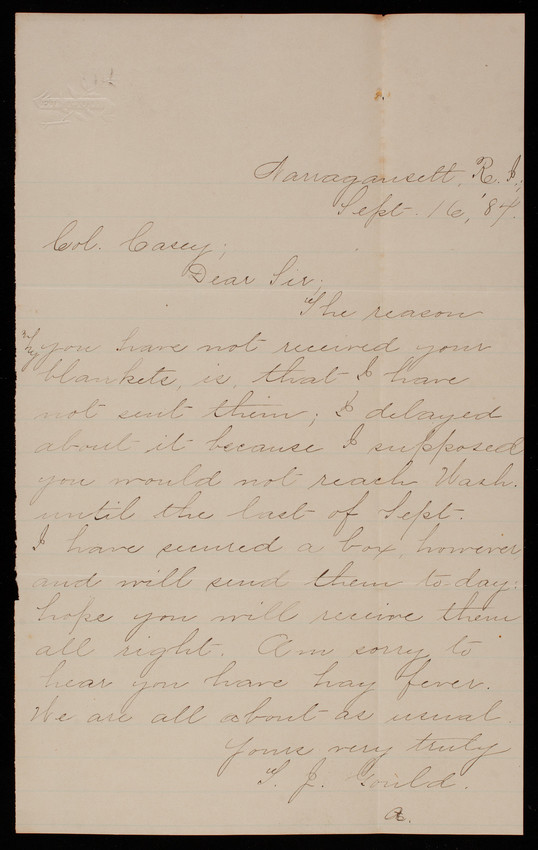 Narragansett, R. I.,
Sept. 16, '84.
Col. Casey;
Dear Sir;
The reason
you have not received your
blankets, is, that I have
not sent them; I delayed
about it because I supposed
you would not reach Wash.
until the last of Sept.
I have secured a box, however
and will send them to-day:
hope you will receive them
all right. Am sorry to
hear you have hay fever.
We are all about as usual.
Yours very truly
T. J. Gould.
a.